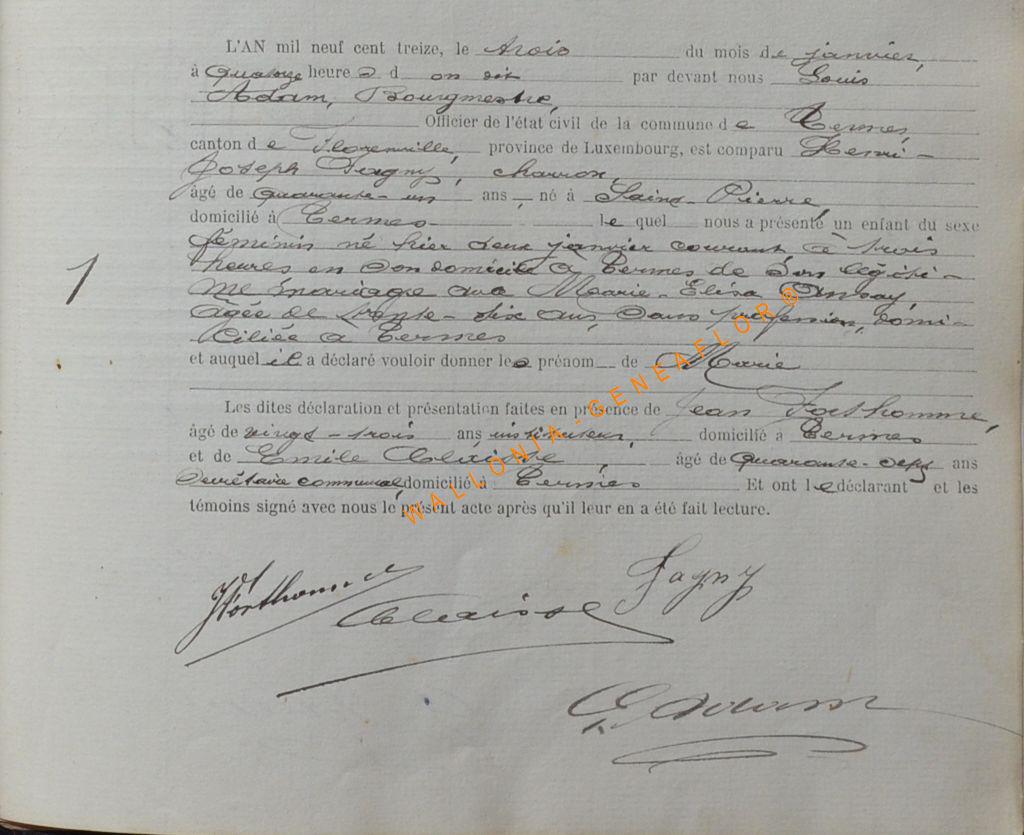 L'AN mil neuf cent treize, le trois du mois de janvier,
à quatorze heures d on dit par devant nous Louis
Adam, Bourgmestre,
Officier de l'état civil de la commune de Termes,
canton de Florenville, province de Luxembourg, est comparu Henri-
Joseph Fagny, charron,
âgé de quarante-un ans, né à Saint-Pierre,
domicilié à Termes le quel nous a présenté un enfant du sexe
féminin né hier deux janvier courant, à trois
heures en son domicile à Termes de son légiti-
me mariage avec Marie-Elisa Ansay,
âgée de trente-six ans, sans profession, domi-
ciliée à Termes
1
et auquel il a déclaré vouloir donner les prénom de Marie
Les dites déclaration et présentation faites en présence de Jean Forthomme,
âgé de vingt-trois ans instituteur, domicilié à Termes
et de Emile Claisse, âgé de quarante-sept ans
Secrétaire communal, domicilié à Termes Et ont le déclarant et les
témoins signé avec nous le présent acte après qu'il leur en a été fait lecture.
JForthomme
Claisse
Fagny
Adam
WALLONIA-GENEAFLOR®